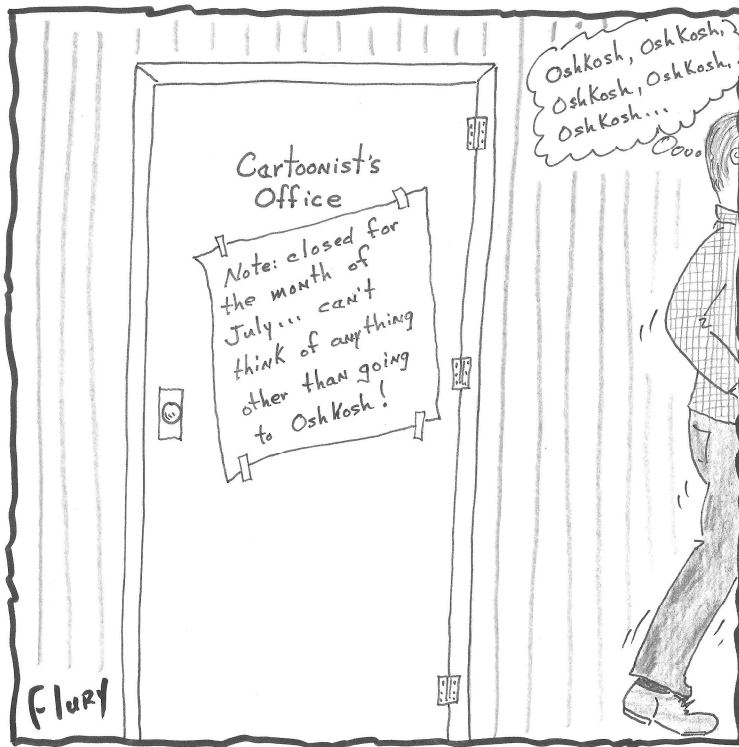 Oshkosh, Oshkosh,
Oshkosh, Oshkosh,
Oshkosh...
Cartoonist's
Office
Note: closed for
the month of
July... can't
think of anything
other than going
to Oshkosh!
Flury